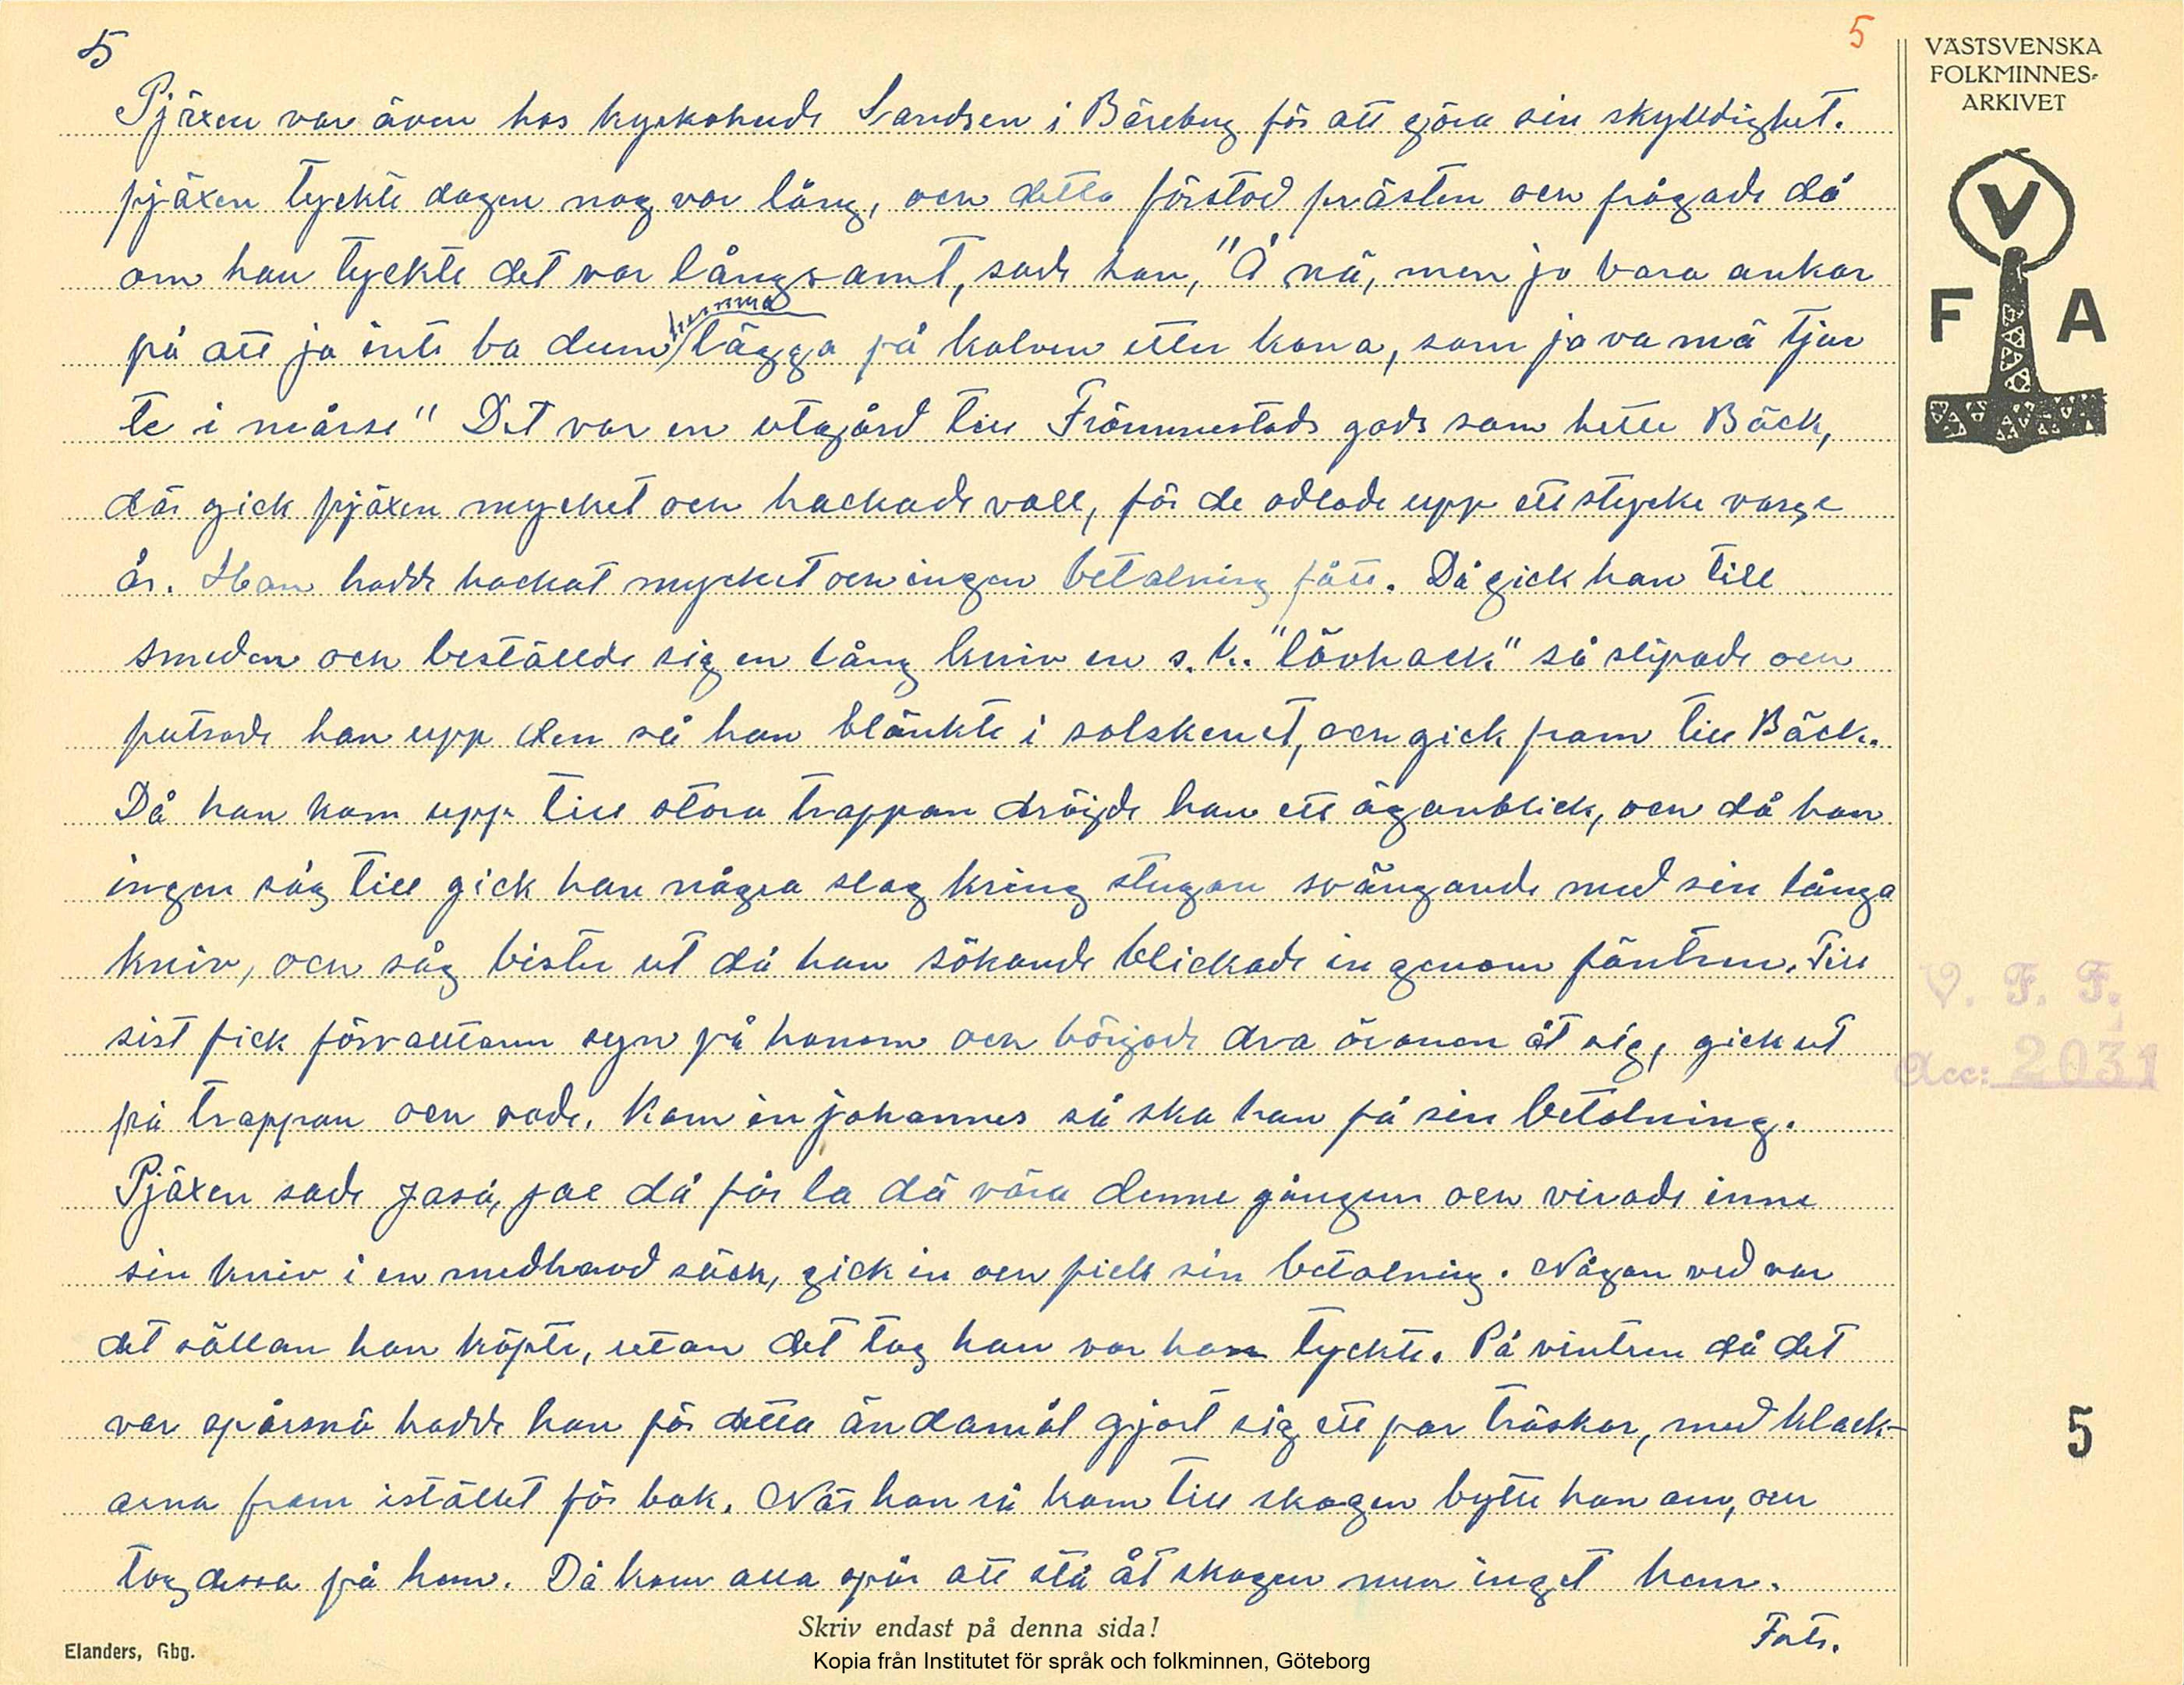 5
5
VÄSTSVENSKA
FOLKMINNES-
ARKIVET
V
F A
Pjäxen var även hos kyrkoherde Sandsen i Bäreberg för att göra sin skylldighet.
pjäxen tyckte dagen nog var lång, och detta förstod prästen och frågade då
om han tyckte det var långsamt, sade han, "Å nä, men ja bara ankar
på att ja inte ba dum hemma lägga på kalven etter kona, som ja va mä tjur
te i mårse" Det var en utagård till Främmestads gods som hette Bäck,
där gick pjäxen mycket och hackade vall, för de odlade upp ett stycke varje
år. Han hadde hackat mycket och ingen betalning fått. Då gick han till
smeden och beställde sig en lång kniv en s.k. "lövhack" så slipade och
putsade han upp den så han blänkte i solskenet, och gick fram till Bäck.
Då han kom upp till stora trappan dröjde han ett ögonblick, och då han
ingen såg till gick han några slag kring stugan svängande med sin långa
kniv, och såg bister ut då han sökande blickade in genom fäntren. Till
sist fick förvalttarn syn på honom och började dra öronen åt sig, gick ut
på trappan och sade, Kom in johannes så ska han få sin betalning.
Pjäxen sade Jaså, jae då får la dä våra denne gången och virade inne
sin kniv i en medhavd säck, gick in och fick sin betalning. Någon ved var
det sällan han köpte, utan det tog han var han tyckte. På vintren då det
var spårsnö hadde han för detta ändamål gjort sig ett par träskor, med klack-
arna fram istället för bak. När han så kom till skogen bytte han om, och
tog dessa på hem. Då kom alla spår att stå åt skogen men inget hem.
Forts.
Skriv endast på denna sida!
Elanders, Gbg.
Kopia från Institutet för språk och folkminnen, Göteborg
V. F. F.
Acc: 2031
5